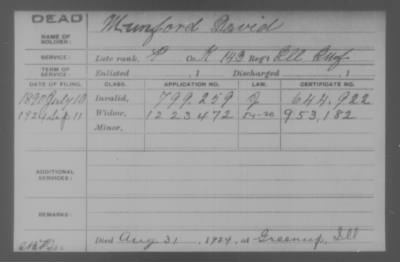 DEAD
Munford David
NAME OF SOLDIER:
SERVICE: Late rank, P Co. K 143 Reg't Ill Inf
TERM OF SERVICE: Enlisted , 1 Discharged , 1
DATE OF FILING. CLASS. APPLICATION NO. LAW. CERTIFICATE NO.
1890 July 10 Invalid, 799.259 J 644.922
1924 Sep 11 Widow, 1223472 953,182
Minor,
ADDITIONAL SERVICES:
REMARKS:
Died Aug 31, 1924, at Greenup, Ill